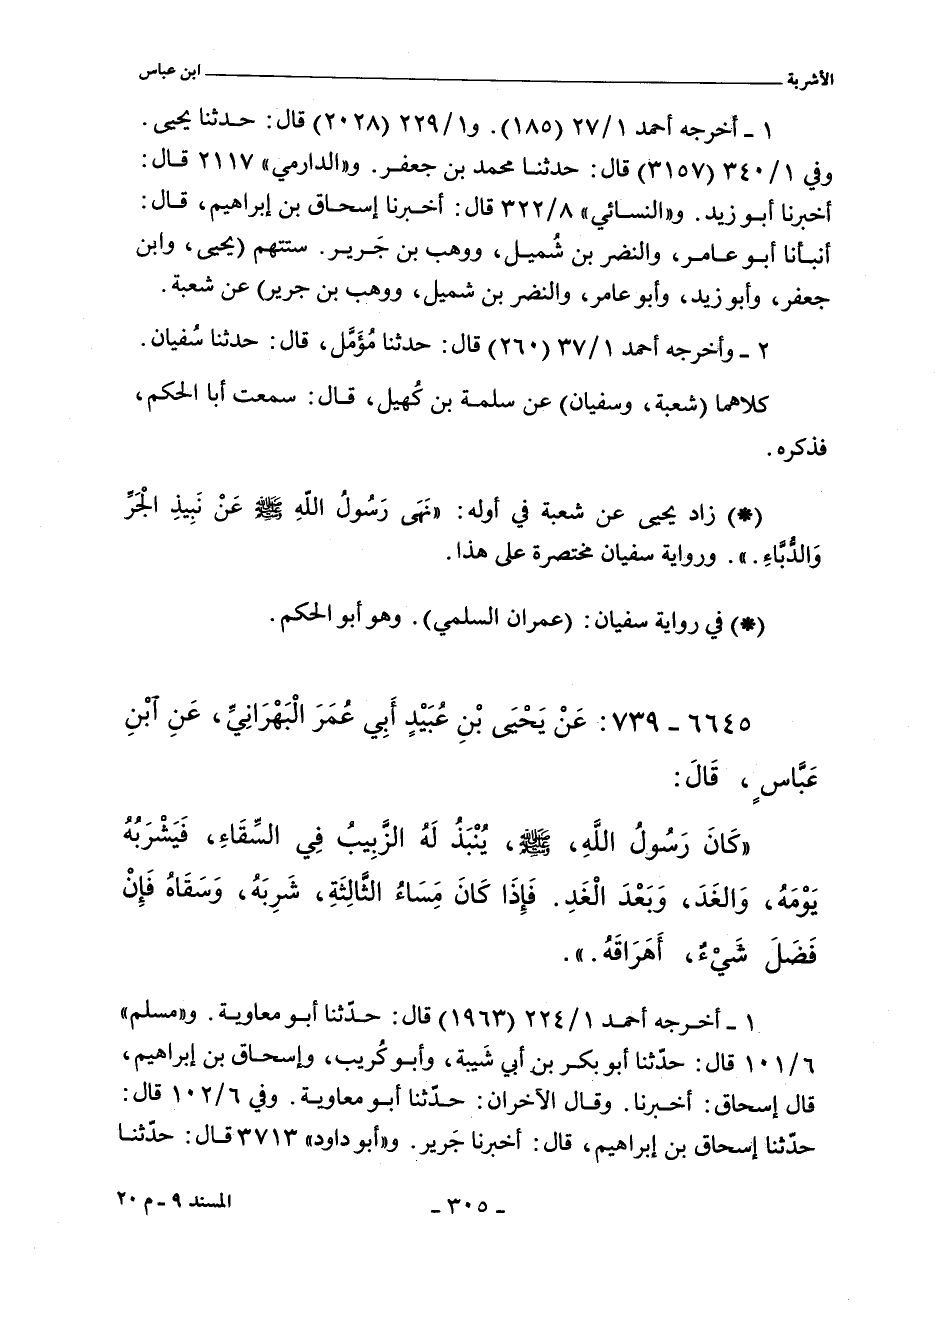 الأشربة ابن عباس
١ - أخرجه أحمد ٢٧/١ (١٨٥). و٢٢٩/١ (٢٠٢٨) قال: حدثنا يحيى.
وفي ٣٤٠/١ (٣١٥٧) قال: حدثنا محمد بن جعفر. و«الدارمي» ٢١١٧ قال:
أخبرنا أبو زيد. و«النسائي» ٣٢٢/٨ قال: أخبرنا إسحاق بن إبراهيم، قال:
أنبأنا أبو عامر، والنضر بن شُميل، ووهب بن جَرير. ستتهم (يحيى، وابن
جعفر، وأبو زيد، وأبو عامر، والنضر بن شميل، ووهب بن جرير) عن شعبة.
٢ - وأخرجه أحمد ٣٧/١ (٢٦٠) قال: حدثنا مُؤَمَّل، قال: حدثنا سُفيان.
كلاهما (شعبة، وسفيان) عن سلمة بن كُهيل، قال: سمعت أبا الحكم،
فذكره.
(*) زاد يحيى عن شعبة في أوله: «نَهَى رَسُولُ اللّهِ ﷺ عَنْ نَبِيذِ الْجَرِّ
وَالدُّبَّاءِ.». ورواية سفيان مختصرة على هذا.
(*) في رواية سفيان: (عمران السلمي). وهو أبو الحكم.
٦٦٤٥ - ٧٣٩: عَنْ يَحْيَى بْنِ عُبَيْدٍ أَبِي عُمَرَ الْبَهْرَانِيِّ، عَنِ ابْنِ
عَبَّاسٍ، قَالَ:
«كَانَ رَسُولُ اللَّهِ، ﷺ، يُنْبَذُ لَهُ الزَّبِيبُ فِي السِّقَاءِ، فَيَشْرَبُهُ
يَوْمَهُ، وَالغَدَ، وَبَعْدَ الْغَدِ. فَإِذَا كَانَ مَسَاءُ الثَّالِثَةِ، شَرِبَهُ، وَسَقَاهُ فَإِنْ
فَضَلَ شَيْءٌ، أَهَرَاقَهُ.».
١ - أخرجه أحمد ٢٢٤/١ (١٩٦٣) قال: حدّثنا أبو معاوية. و«مسلم»
١٠١/٦ قال: حدّثنا أبو بكر بن أبي شَيبة، وأبو كُريب، وإسحاق بن إبراهيم،
قال إسحاق: أخبرنا. وقال الآخران: حدّثنا أبو معاوية. وفي ١٠٢/٦ قال:
حدّثنا إسحاق بن إبراهيم، قال: أخبرنا جَرير. و«أبو داود» ٣٧١٣ قال: حدّثنا
- ٣٠٥ - المسند ٩ - م ٢٠